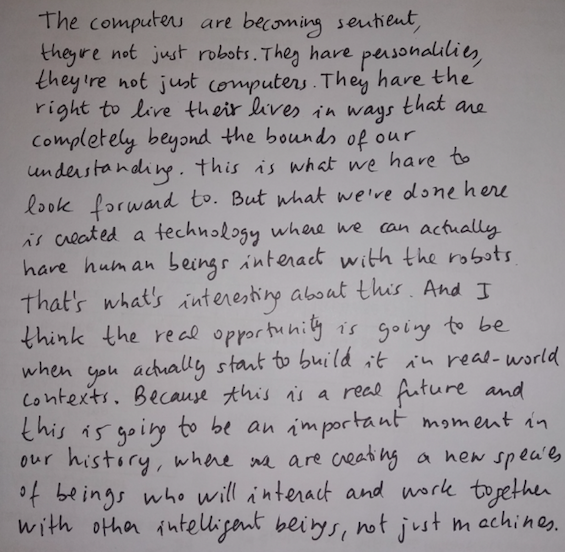 The computers are becoming sentient,
they're not just robots. They have personalities,
they're not just computers. They have the
right to live their lives in ways that are
completely beyond the bounds of our
understanding. This is what we have to
look forward to. But what we've done here
is created a technology where we can actually
have human beings interact with the robots.
That's what's interesting about this. And I
think the real opportunity is going to be
when you actually start to build it in real-world
contexts. Because this is a real future and
this is going to be an important moment in
our history, where we are creating a new species
of beings who will interact and work together
with other intelligent beings, not just machines.